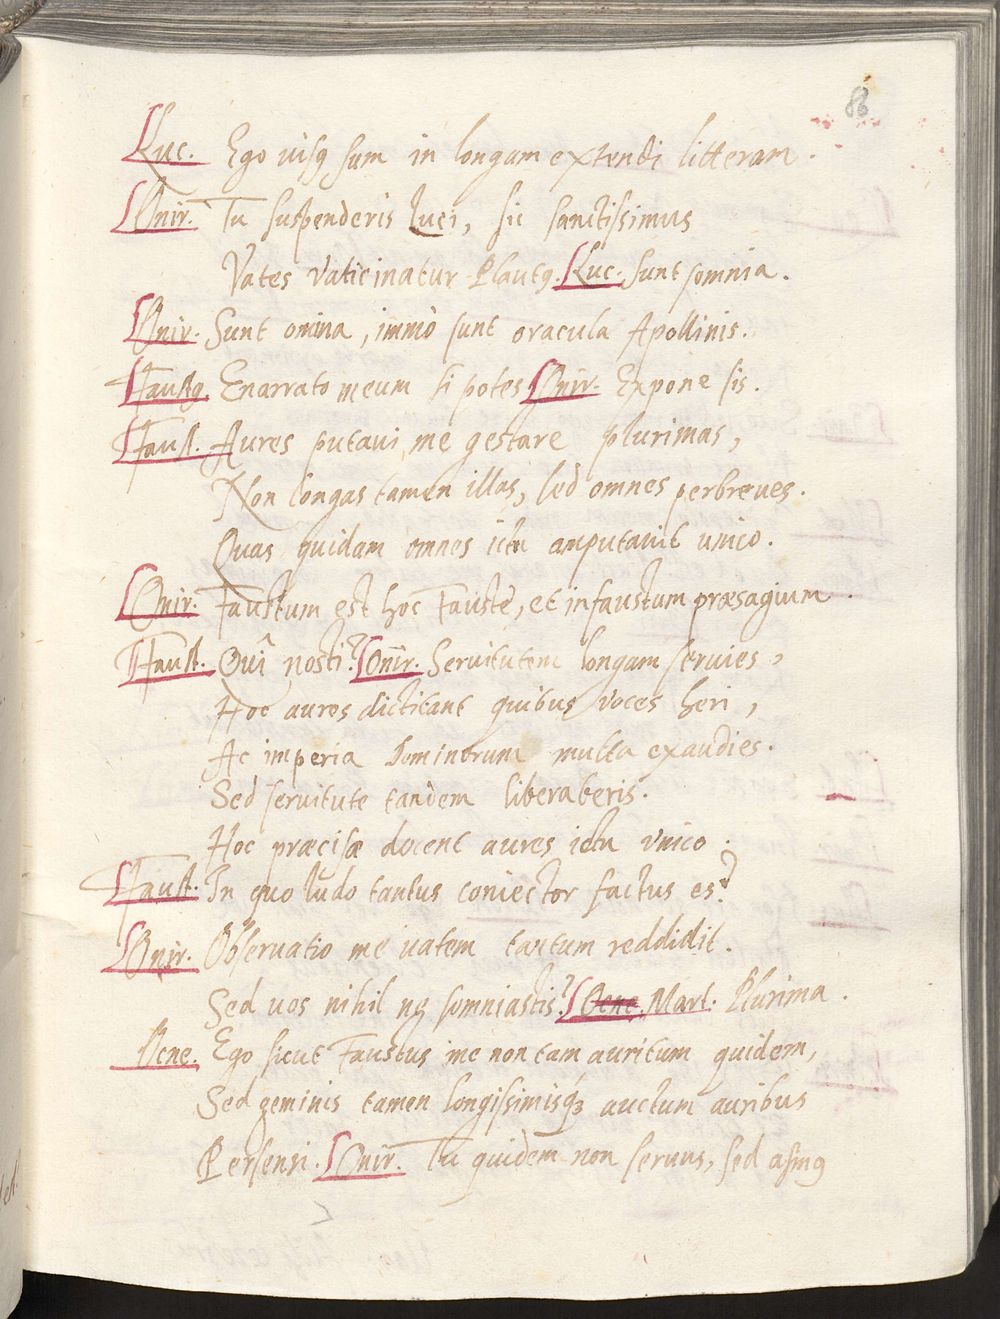 86
Luc. Ego uisq sum in longam extendi litteram.
Onir. Tu suspenderis Luci, sic sanctissimus
Vates vaticinatur Plautq. Luc. sunt somnia.
Onir. Sunt omina, immò sunt oracula Apollinis.
Faustq. Enarrato meum si potes Onir. Expone sis.
Faust. Aures putaui me gestare plurimas,
Non longas tamen illas, sed omnes perbreues.
Quas quidam omnes ictu amputauit unico.
Onir. Faustum est hoc Fauste, et infaustum præsagium.
Faust. Quî nosti? Onir. Seruitutem longam seruies,
Hoc aures dictitant quibus voces heri,
Ac imperia dominorum multa exaudies.
Sed seruitute tandem liberaberis.
Hoc præcisæ docent aures ictu vnico.
Faust. In quo ludo tantus coniector factus es?
Onir. Obseruatio me uatem tantum reddidit.
Sed uos nihil nq somniastis? Bene. Mart. Plurima.
Bene. Ego sicut Faustus me non tam auritum quidem,
Sed geminis tamen longissimisq́3 auctum auribus
Persensi. Onir. Tu quidem non seruus, sed asinq